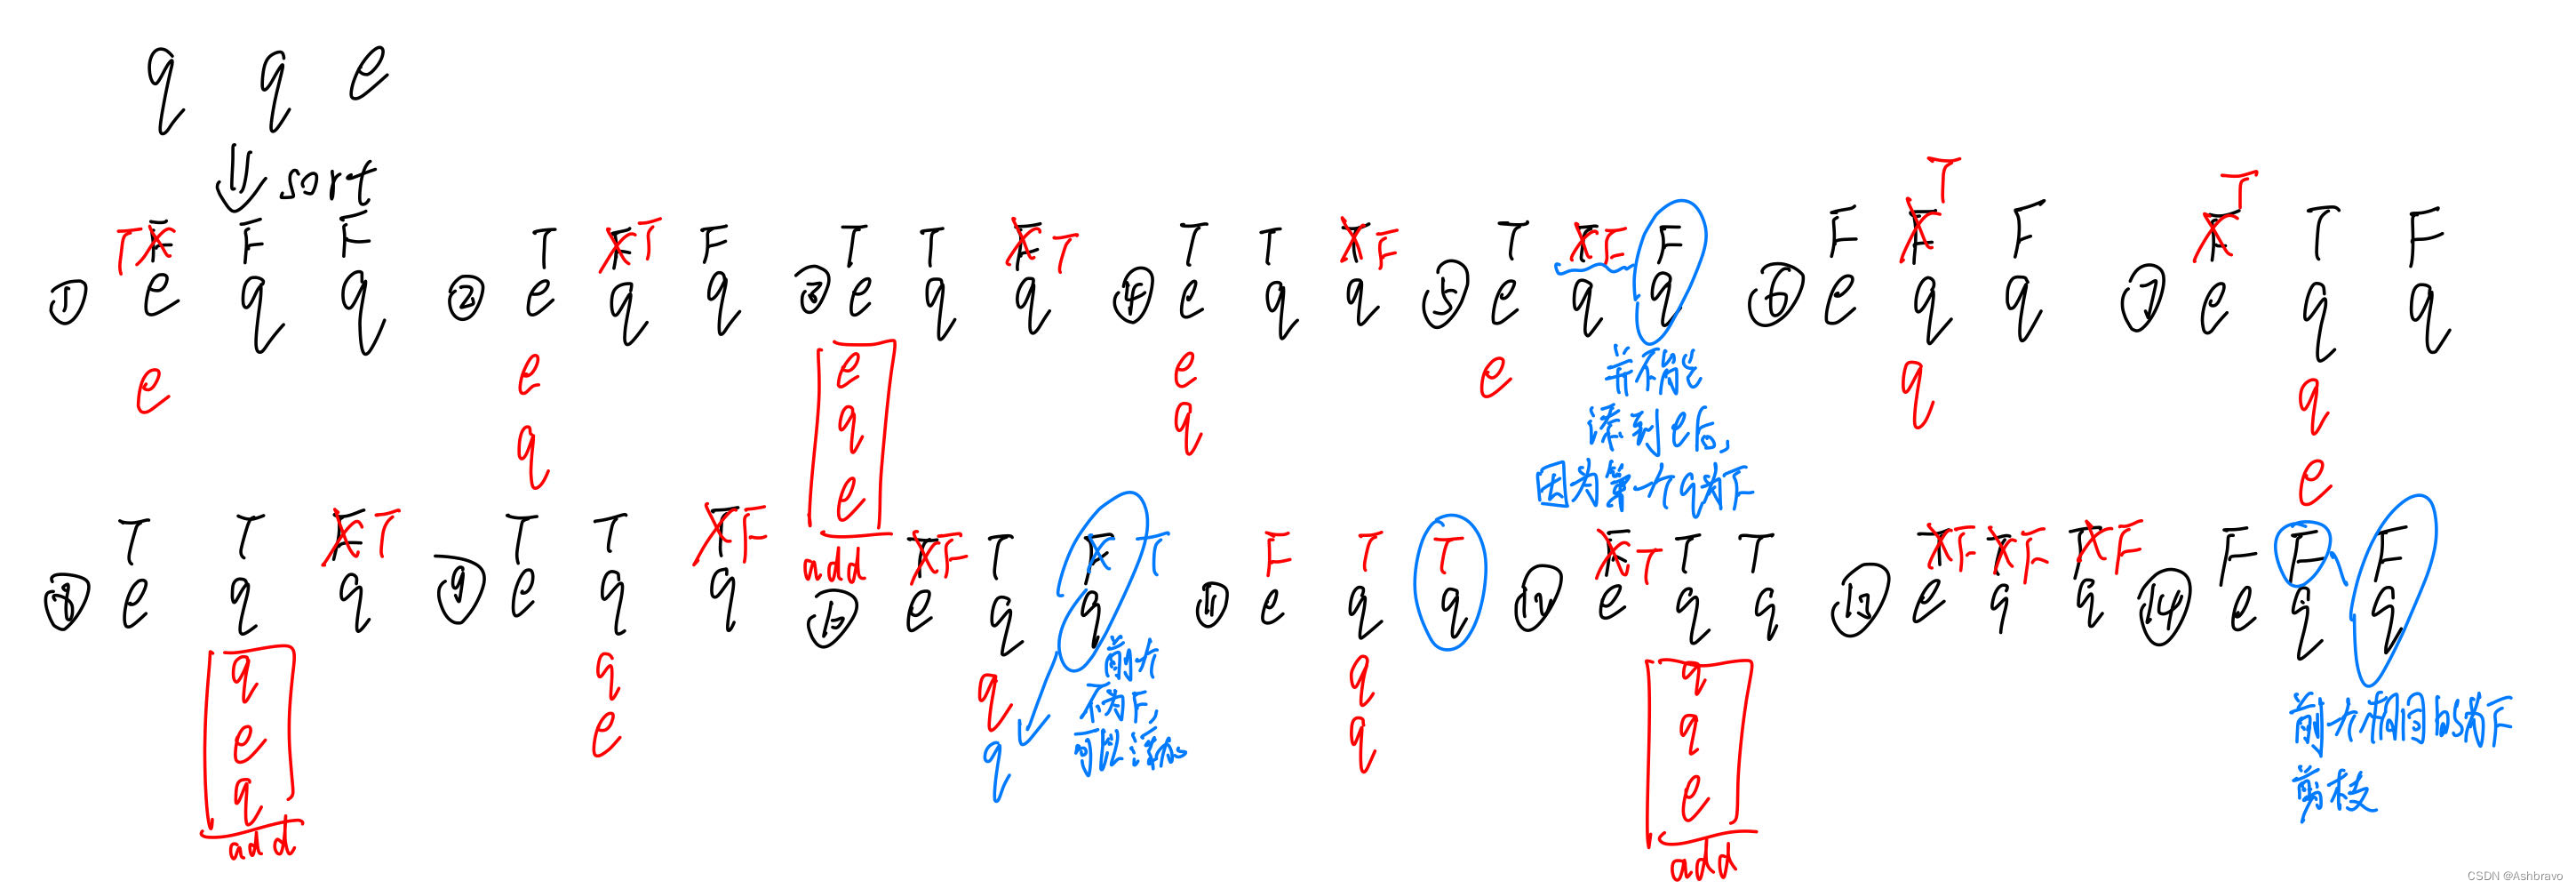 q q e
sort
T F F F
① e q q
e
T F T F
② e q q
e
q
T T F T
③ e q q
e
q
e
add
T T T F
④ e q q
e
q
T T F F
⑤ e q q
e
并不能
添到e后,
因为第一个q为F
T
F F F
⑥ e q q
q
T
F T F
⑦ e q q
q
e
T T F T
⑧ e q q
q
e
q
add
T T T F
⑨ e q q
q
e
T F T F T
⑩ e q q
q
q
前个
不为F,
可以添加
F T T
⑪ e q q
q
q
F T T T
⑫ e q q
q
q
e
add
T F T F T F
⑬ e q q
F F F
⑭ e q q
前个相同的为F
剪枝
CSDN @Ashbravo